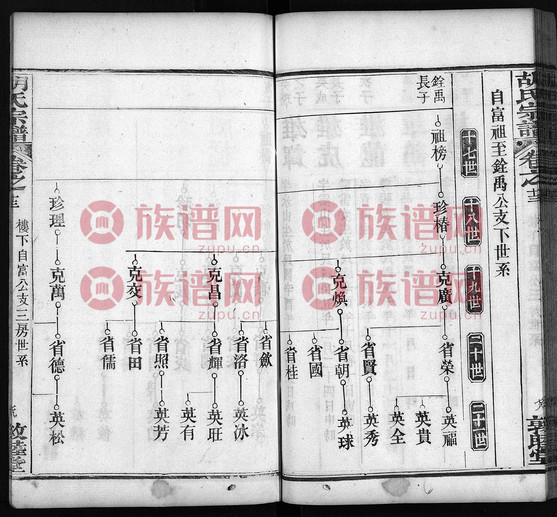 胡氏宗譜
卷之
自富祖至銓禹公支下世系
十七世
十八世
十九世
二十世
二十一世
銓禹
長子
祖榜
珍椿
克廣
省榮
英福
英貴
英全
省賢
英秀
克煥
省朝
英球
省國
省桂
省斂
克昌
省洛
英冰
省輝
英旺
英有
省照
英芳
克交
省田
省儒
珍理
克萬
省德
英松
樓下自富公支三房世系
胡氏宗譜
卷之
敦睦堂
族谱网
zupu.cn
族谱网
zupu.cn
族谱网
zupu.cn
族谱网
zupu.cn